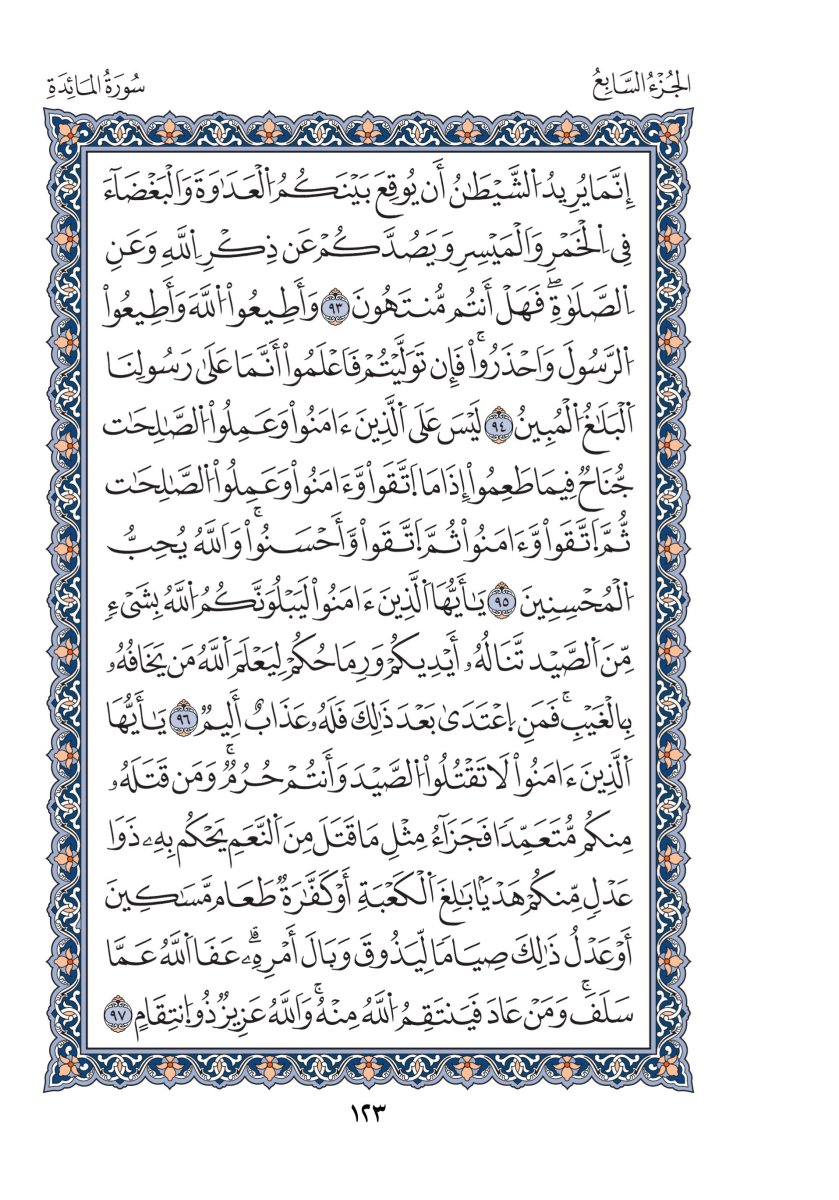 الجُزْءُ السَّابِعُ
سُورَةُ المَائِدَةِ
إِنَّمَا يُرِيدُ اُ۬لشَّيْطَٰنُ أَن يُوقِعَ بَيْنَكُمُ اُ۬لْعَدَٰوَةَ وَالْبَغْضَآءَ
فِے اِ۬لْخَمْرِ وَالْمَيْسِرِ وَيَصُدَّكُمْ عَن ذِكْرِ اِ۬للَّهِ وَعَنِ
اِ۬لصَّلَوٰةِۖ فَهَلْ أَنتُم مُّنتَهُونَ ٩٣ وَأَطِيعُواْ اُ۬للَّهَ وَأَطِيعُواْ
اُ۬لرَّسُولَ وَاحْذَرُواْۚ فَإِن تَوَلَّيْتُمْ فَاعْلَمُواْ أَنَّمَا عَلَىٰ رَسُولِنَا
اَ۬لْبَلَٰغُ اُ۬لْمُبِينُ ٩٤ لَيْسَ عَلَى اَ۬لَّذِينَ ءَامَنُواْ وَعَمِلُواْ اُ۬لصَّٰلِحَٰت
جُّنَاحٌ فِيمَا طَعِمُواْ إِذَا مَا اَ۪تَّقَواْ وَّءَامَنُواْ وَعَمِلُواْ اُ۬لصَّٰلِحَٰت
ثُّمَّ اَ۪تَّقَواْ وَّءَامَنُواْ ثُمَّ اَ۪تَّقَواْ وَّأَحْسَنُواْۚ وَاللَّهُ يُحِبُّ
اُ۬لْمُحْسِنِينَ ٩٥ يَٰأَيُّهَا اَ۬لَّذِينَ ءَامَنُواْ لَيَبْلُوَنَّكُمُ اُ۬للَّهُ بِشَےْءٖ
مِّنَ اَ۬لصَّيْد تَّنَالُهُۥ أَيْدِيكُمْ وَرِمَاحُكُمْ لِيَعْلَمَ اَ۬للَّهُ مَن يَخَافُهُۥ
بِالْغَيْبِۚ فَمَنِ اِ۪عْتَدَىٰ بَعْدَ ذَٰلِكَ فَلَهُۥ عَذَابٌ أَلِيمٌ ٩٦ يَٰأَيُّهَا
اَ۬لَّذِينَ ءَامَنُواْ لَا تَقْتُلُواْ اُ۬لصَّيْدَ وَأَنتُمْ حُرُمٌۚ وَمَن قَتَلَهُۥ
مِنكُم مُّتَعَمِّدٗا فَجَزَآءُ مِثْلِ مَا قَتَلَ مِنَ اَ۬لنَّعَمِ يَحْكُم بِهِۦ ذَوَا
عَدْلٖ مِّنكُمْ هَدْيَۢا بَٰلِغَ اَ۬لْكَعْبَةِ أَوْ كَفَّٰرَةٌ طَعَام مَّسَٰكِينَ
أَوْ عَدْلُ ذَٰلِكَ صِيَامٗا لِّيَذُوقَ وَبَالَ أَمْرِهِۦۗ عَفَا اَ۬للَّهُ عَمَّا
سَلَفَۚ وَمَنْ عَادَ فَيَنتَقِمُ اُ۬للَّهُ مِنْهُۚ وَاللَّهُ عَزِيزٌ ذُو اُ۪نتِقَامٍ ٩٧
١٢٣